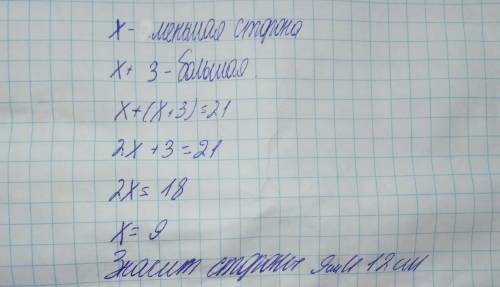 x - меньшая сторона
x + 3 - большая
x + (x + 3) = 21
2x + 3 = 21
2x = 18
x = 9
Значит стороны 9см и 12 см